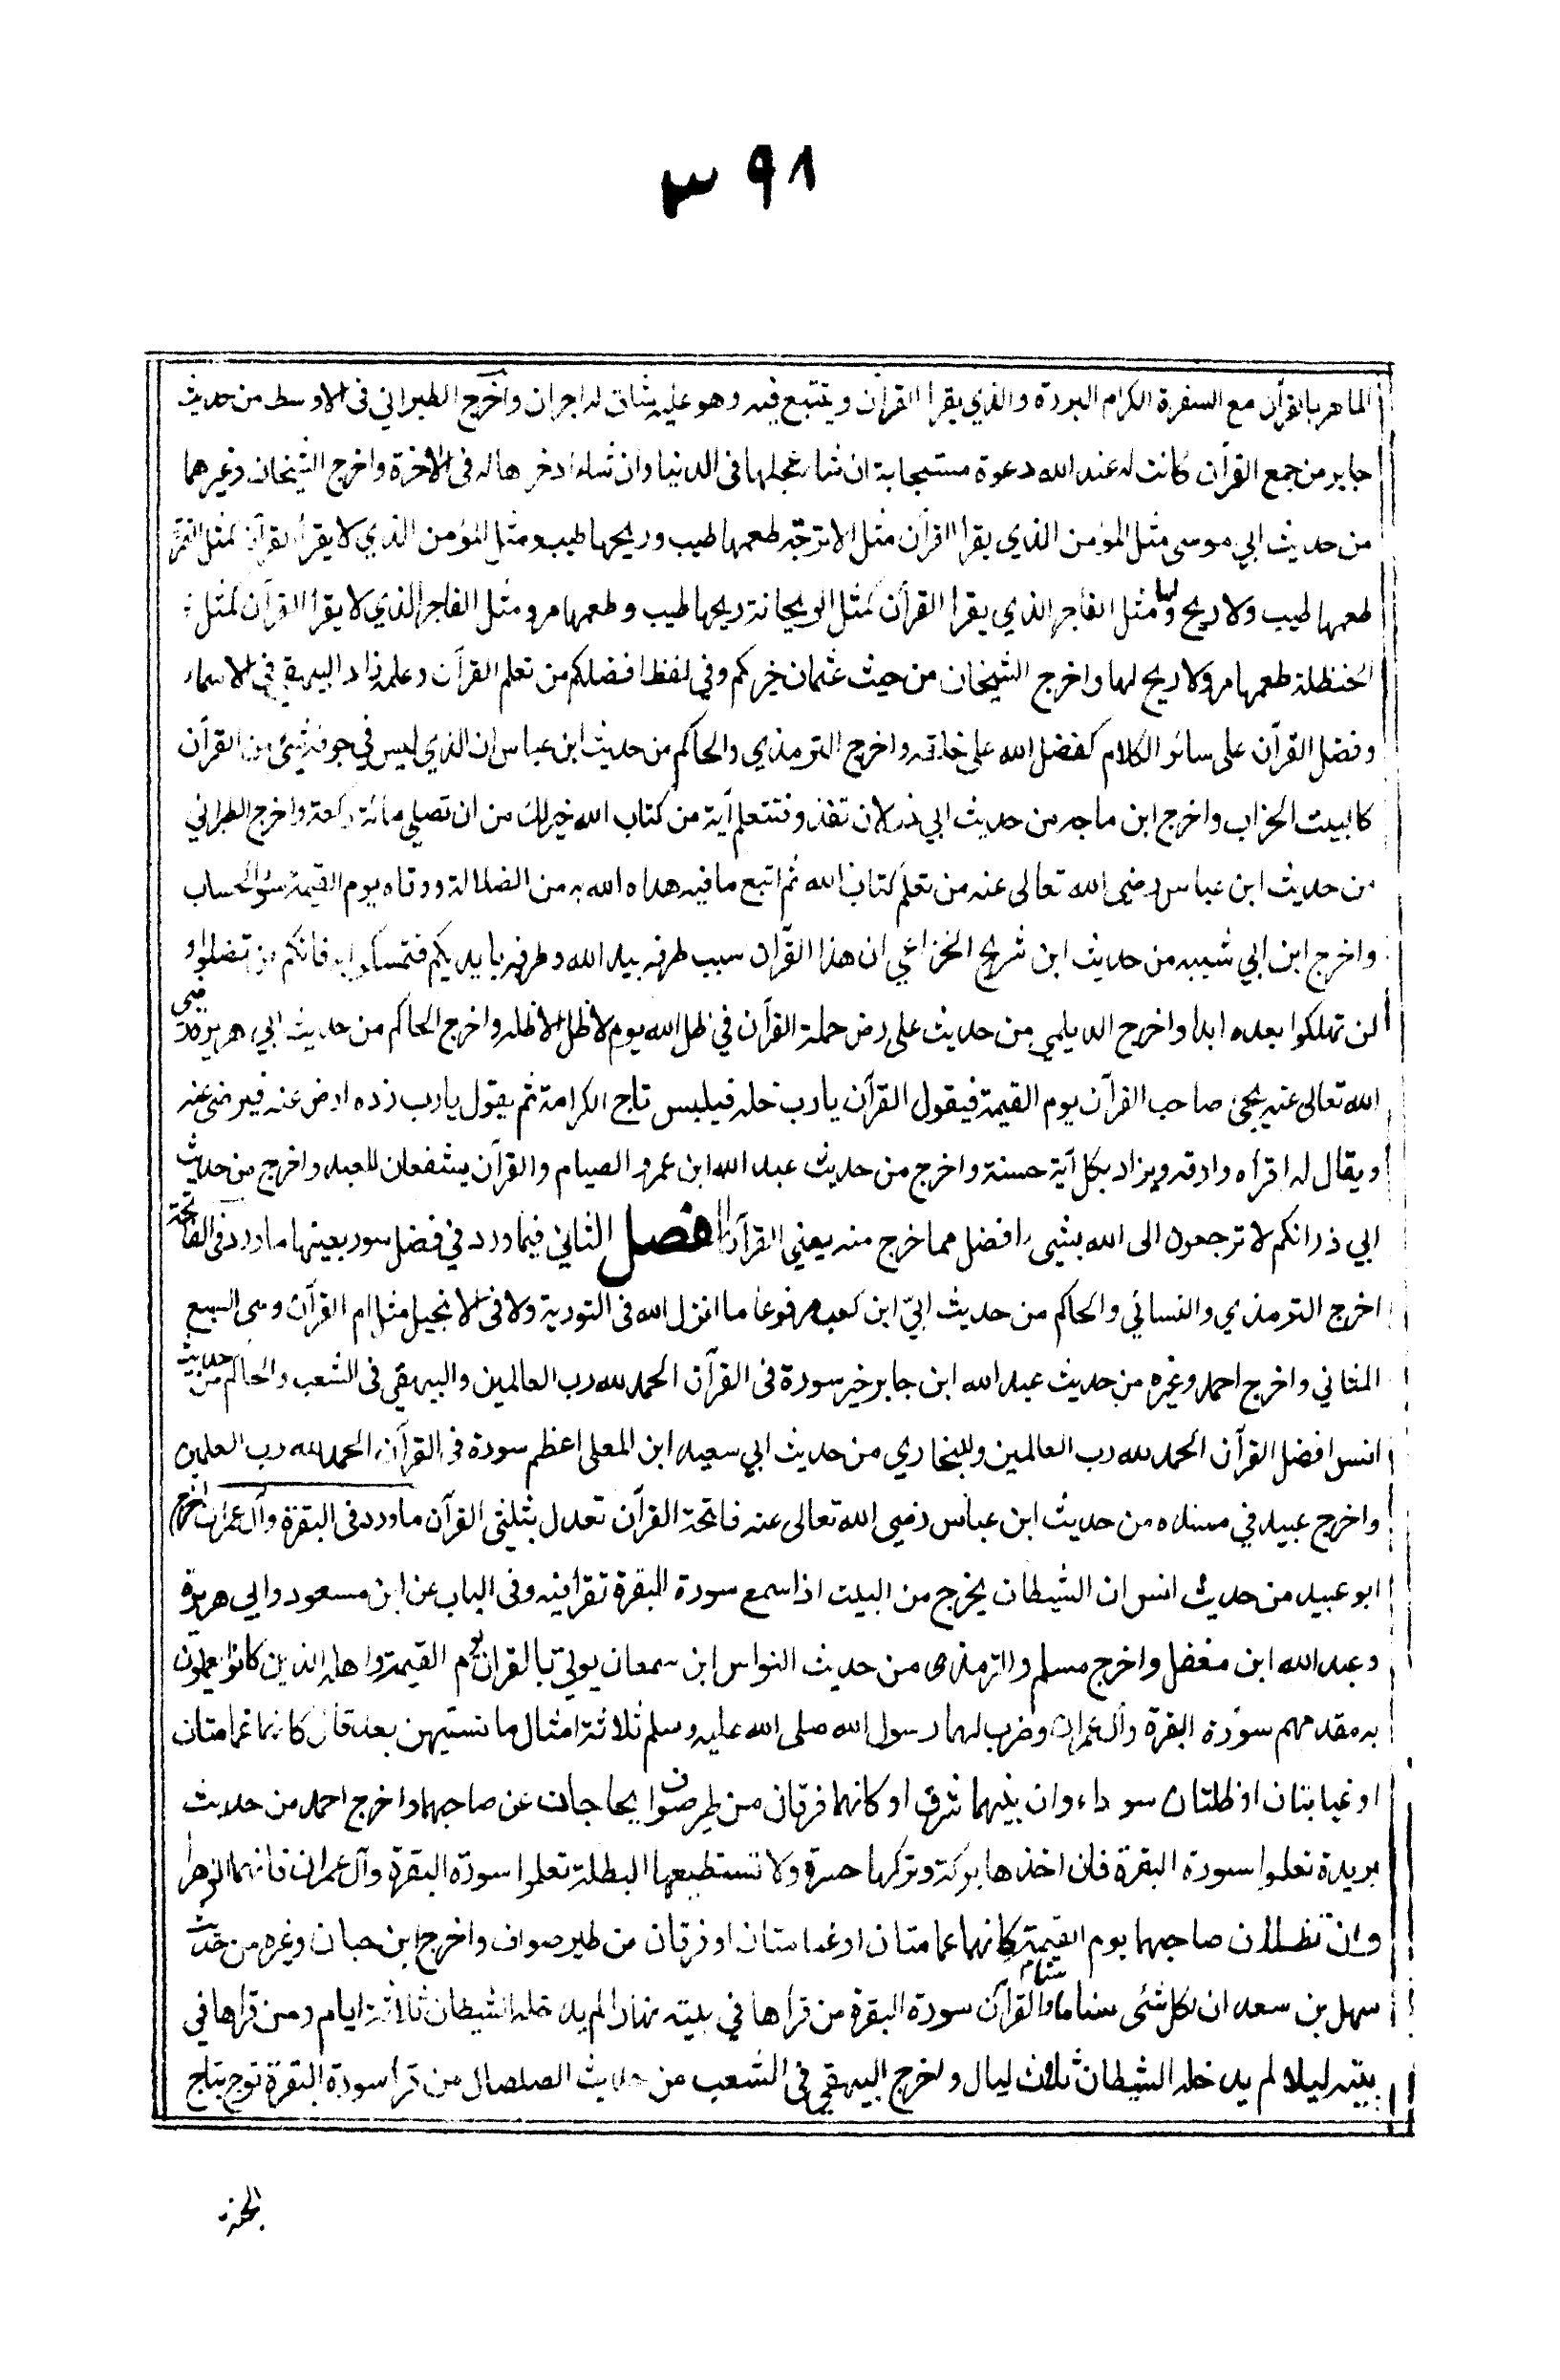 ٣٩٨
الماهر بالقرآن مع السفرة الكرام البررة والذي يقرا القران ويتتبع فيه وهو عليه شاق له اجران واخرج الطبراني فى الاوسط من حديث
جابر من جمع القرآن كانت له عند الله دعوة مستجابة ان شاء عجلها فى الدنيا وان شاء ادخر هاله فى الاخرة واخرج الشيخان وغيرهما
من حديث ابي موسى مثل المؤمن الذي يقرا القرآن مثل الاترجّه طعمها طيب وريحها طيب ومثل المؤمن الذي لا يقرأ القرآن كمثل التمرة
طعمها طيب ولا ريح لها ومثل الفاجر الذي يقرا القرآن كمثل الريحانة ريحها طيب وطعمها مر ومثل الفاجر الذي لا يقرا القرآن كمثل
الحنظلة طعمها مر ولا ريح لها واخرج الشيخان من حيث عثمان خيركم وفي لفظ افضلكم من تعلم القرآن وعلمه زاد البيهقي في الاسماء
وفضل القرآن على سائر الكلام كفضل الله على خلقه واخرج الترمذي والحاكم من حديث ابن عباس ان الذي ليس في جوفه شيئ من القرآن
كالبيت الخراب واخرج ابن ماجه من حديث ابي ذر لان تغذو فتتعلم آية من كتاب الله خير لك من ان تصلي مائة ركعة واخرج الطبراني
من حديث ابن عباس رضى الله تعالى عنه من تعلم كتاب الله ثم اتبع ما فيه هداه الله به من الضلالة ووقاه يوم القيمة سوٓ الحساب
واخرج ابن ابي شيبه من حديث ابن شريح الخزاعي ان هذا القرآن سبب طرفه بيد الله وطرفه بايديكم فتمسكوا به فانكم لن تضلوا و
لن تهلكوا بعده ابدا واخرج الديلمي من حديث على رض حملة القرآن في ظل الله يوم لا ظل الا ظله واخرج الحاكم من حديث ابي هريرة رضى
الله تعالى عنه يجئ صاحب القرآن يوم القيمة فيقول القرآن يارب حله فيلبس تاج الكرامة ثم يقول يارب زده ارض عنه فيرضى عنه
ويقال له اقرأه وارقه ويزاد بكل آية حسنة واخرج من حديث عبد الله ابن عمرو الصيام والقرآن يشفعان للعبد واخرج من حديث
ابي ذر انكم لا ترجعون الى الله بشيىء افضل مما خرج منه يعني القرآن الفصل الثاني فيما ورد في فضل سور بعينها ما ورد فى الفاتحة
اخرج الترمذي والنسائي والحاكم من حديث ابيّ ابن كعب مرفوعا ما انزل الله فى التورية ولا فى الانجيل مثل ام القرآن وهى السبع
المثاني واخرج احمد وغيره من حديث عبد الله ابن جابر خير سورة فى القرآن الحمد لله رب العالمين والبيهقي فى الشعب والحاكم من حديث
انس افضل القرآن الحمد لله رب العالمين وللبخاري من حديث ابي سعيد ابن المعلى اعظم سورة فى القرآن الحمد لله رب العلمين
واخرج عبيد في مسنده من حديث ابن عباس رضى الله تعالى عنه فاتحة القرآن تعدل بثلثى القرآن ما ورد فى البقرة وآل عمران اخرج
ابو عبيد من حديث انس ان الشيطان يخرج من البيت اذا سمع سورة البقرة تقرا فيه وفى الباب عن ابن مسعود وابي هريرة
وعبد الله ابن مغفل واخرج مسلم والترمذى من حديث النواس ابن سمعان يوتي بالقران يوم القيمة واهله الذين كانوا يعملون
به مقدمهم سورة البقرة وآل عمران وضرب لهما رسول الله صلى الله عليه وسلم ثلاثة امثال ما نسيتهن بعد قال كانهما غمامتان
او غيابتان او ظلتان سوداء وان بينهما شرق او كانهما فرقان من طير صواف يحاجان عن صاحبهما واخرج احمد من حديث
بريدة تعلموا سورة البقرة فان اخذها بركة وتركها حسرة ولا تستطيعها البطلة تعلموا سورة البقرة وآل عمران فانهما الزهرا
وان تظلان صاحبهما يوم القيمة كانهما غمامتان او غيابتان او فرقان من طير صواف واخرج ابن حبان وغيره من حديث
سهل بن سعد ان لكل شئ سناما وسنام القرآن سورة البقرة من قرأها في بيته نهارا لم يدخله الشيطان ثلاثة ايام ومن قراها في
بيته ليلا لم يدخله الشيطان ثلاث ليال واخرج البيهقي فى الشعب من حديث الصلصال من قرأ سورة البقرة توج بتاج
الجنة